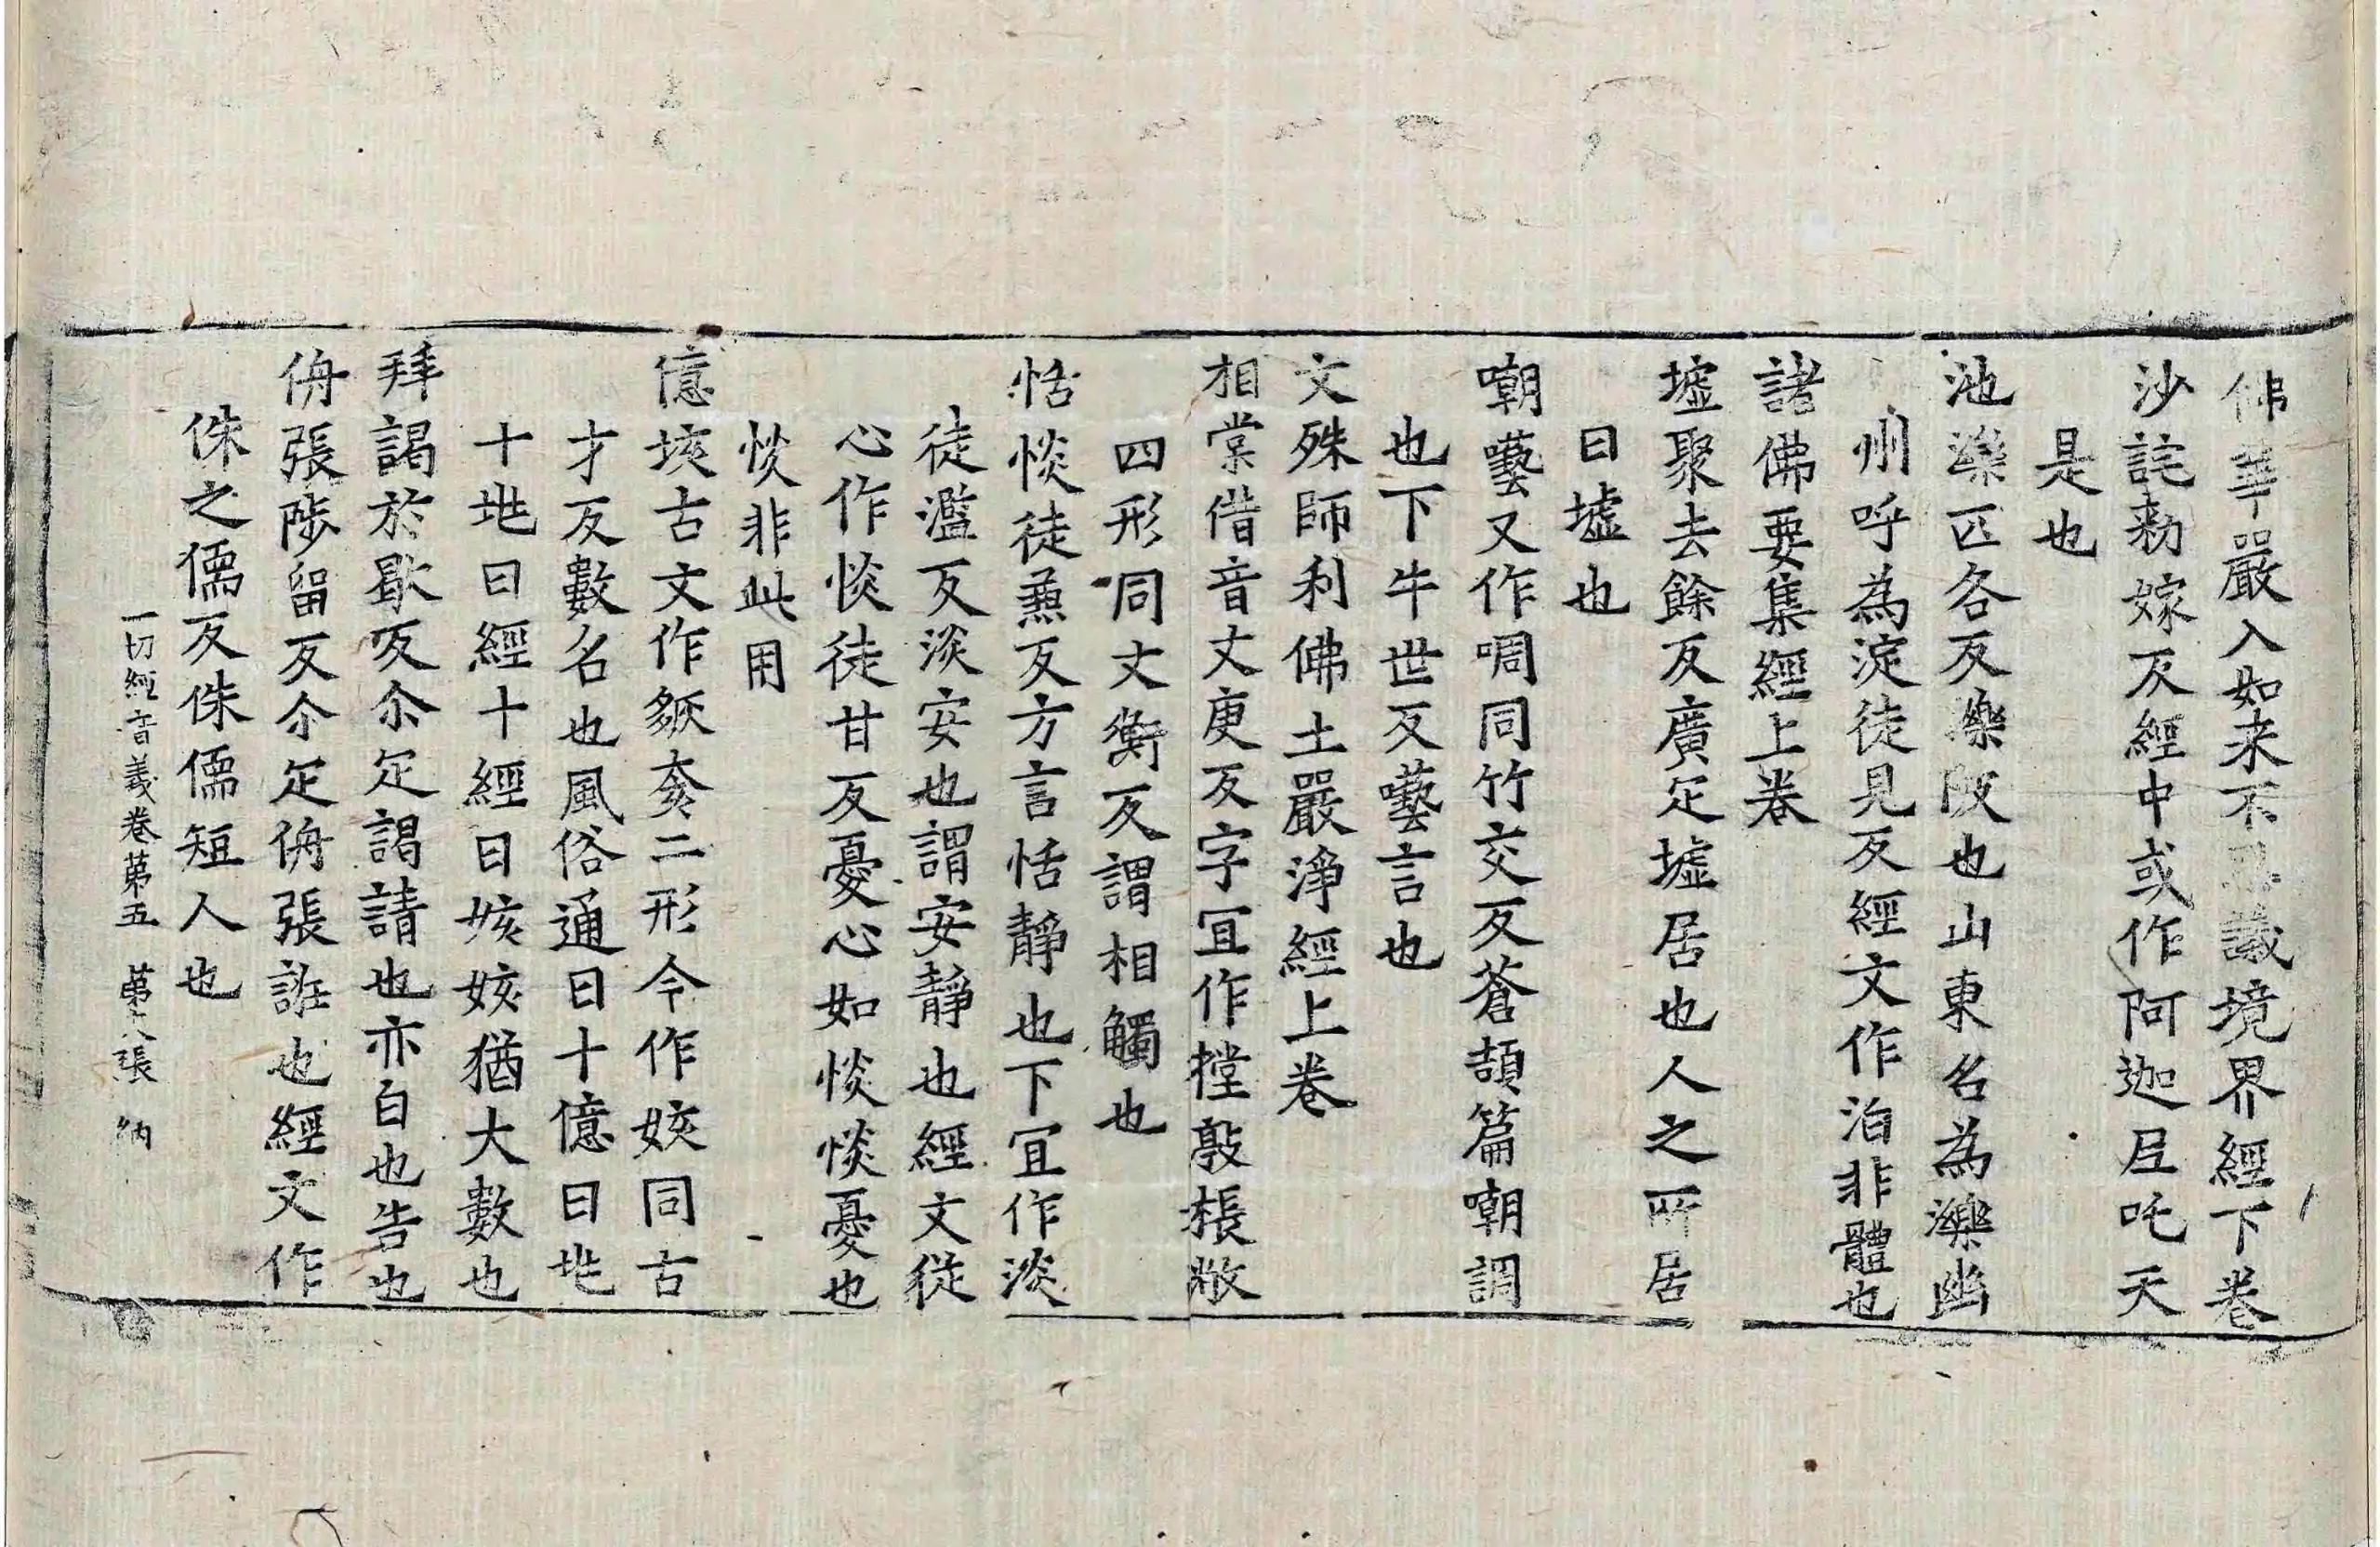 佛華嚴入如来不思議境界經下卷
沙詫勑嫁反經中或作阿迦𡰱吒天
是也
池濼匹各反濼陂也山東名為濼幽
州呼為淀徒見反經文作泊非體也
諸佛要集經上卷
墟聚去餘反廣疋墟居也人之所居
曰墟也
嘲囈又作啁同竹交反蒼頡篇嘲調
也下牛世反囈言也
文殊師利佛土嚴淨經上卷
相棠借音丈庚反字冝作摚敦棖敞
四形同丈衡反謂相觸也
恬惔徒𠔥反方言恬靜也下冝作淡
徒濫反淡安也謂安靜也經文從
心作惔徒甘反憂心如惔惔憂也
惔非此用
億垓古文作𥝌奒二形今作姟同古
才反數名也風俗通曰十億曰兆
十兆曰經十經曰姟姟猶大數也
拜謁於歇反尒疋謁請也亦白也告也
侜張陟留反尒疋侜張誑也經文作
侏之儒反侏儒短人也
一切經音義卷苐五 苐十八張 納